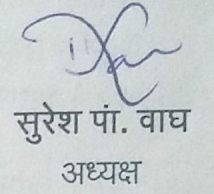 सुरेश पां. वाघ
अध्यक्ष